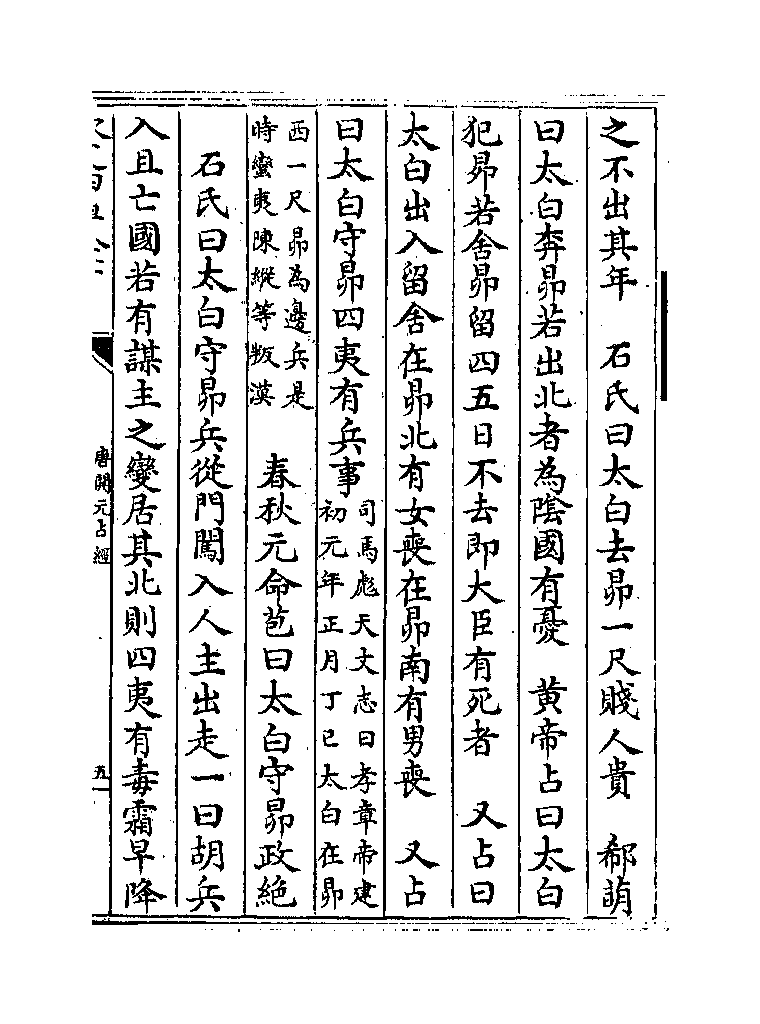 之不出其年　石氏曰太白去昴一尺賤人貴　郗萌
曰太白奔昴若出北者為陰國有憂　黄帝占曰太白
犯昴若舍昴留四五日不去即大臣有死者　又占曰
太白出入留舍在昴北有女喪在昴南有男喪　又占
曰太白守昴四夷有兵事
司馬彪天文志曰孝章帝建
初元年正月丁巳太白在昴
西一尺昴為邊兵是
時蠻夷陳縱等叛漢
春秋元命苞曰太白守昴政絶
石氏曰太白守昴兵從門闖入人主出走一曰胡兵
入且亡國若有謀主之變居其北則四夷有毒霜早降
唐開元占經
五